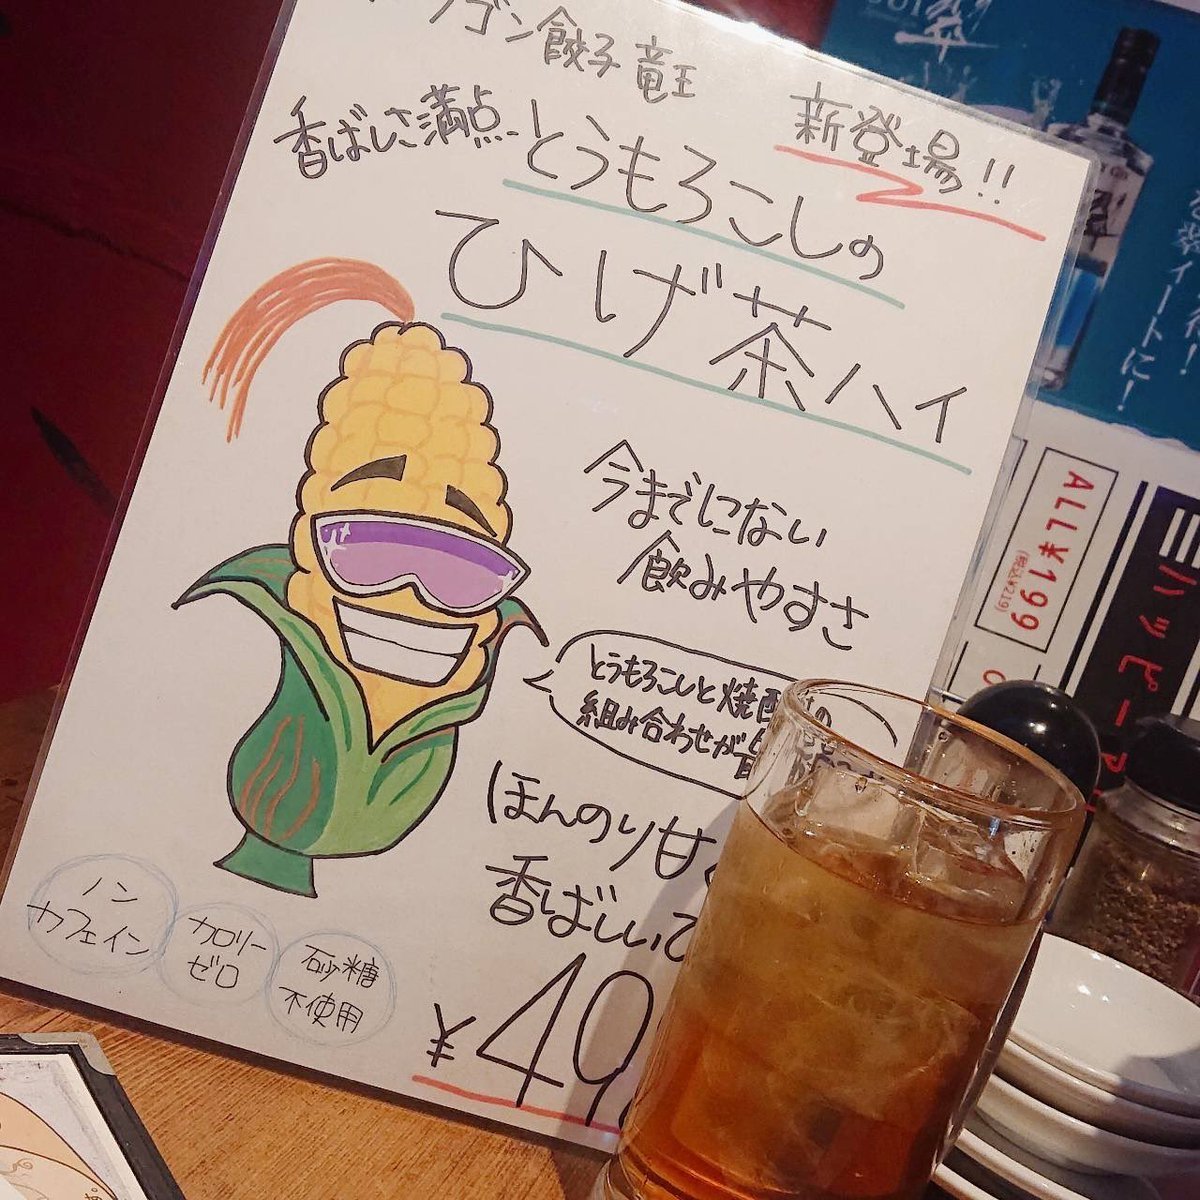 ゴン餃子 竜王
新登場!!
香ばしさ満点
とうもろこしの
ひげ茶ハイ
今までにない
飲みやすさ
とうもろこしと焼酎
組み合わせが
ほんのり甘
香ばしい
¥49
ノン
カフェイン
カロリー
ゼロ
砂糖
不使用
翠
ALL¥199
(税込¥219)
ハッピーア
イートに!